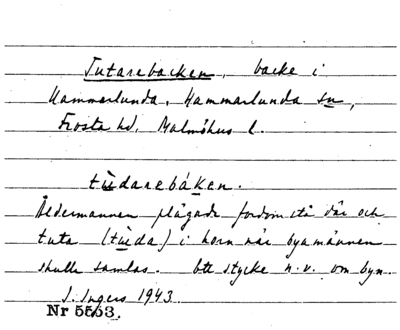 Tutarebacken, backe i
Hammarlunda, Hammarlunda sn,
Frosta hd. Malmöhus l.
tùdarebáken.
Åldermannen plägade fordom stå där och
tuta (tùda) i horn när byamännen
skulle samlas. Ett stycke n.v. om byn.
I. Ingers 1943.
Nr 5563.